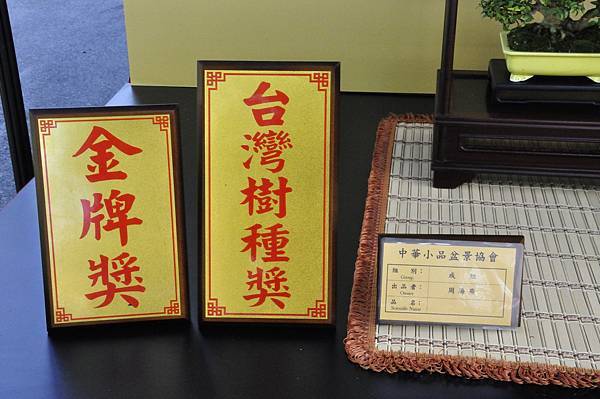 金牌獎
台灣樹種獎
中華小品盆景協會
組 別：
Group.
出品者：周海
Owner
品 名：
Scientific Name